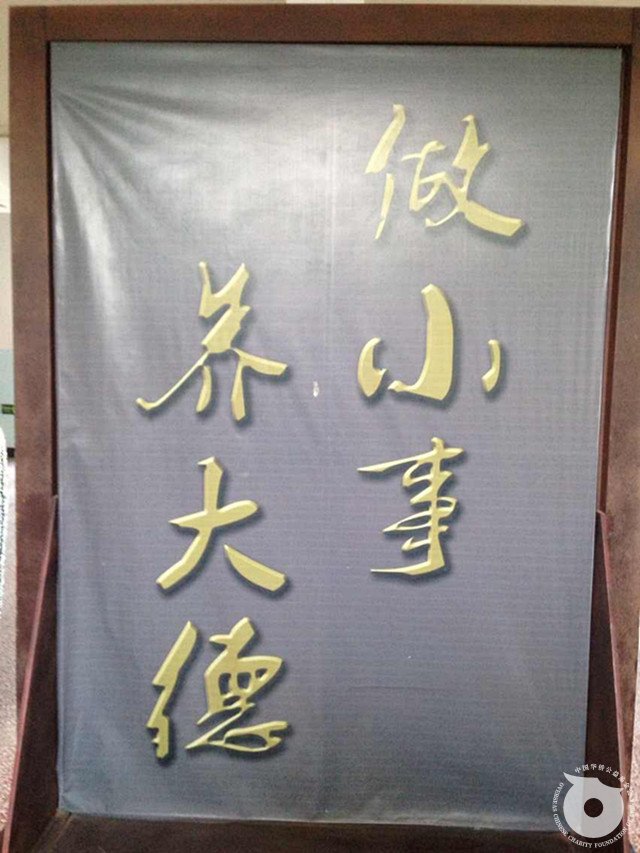 做小事
养大德
中国华侨公益基金会
OVERSEAS CHINESE CHARITY FOUNDATION OF CHINA